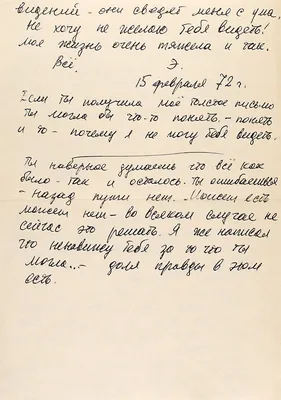 видений - они сводят меня с ума,
Не хочу не желаю тебя видеть!
моя жизнь очень тяжела и так.
Всё. Э.
15 февраля 72 г.
Если ты получила моё толстое письмо
ты могла бы что-то понять. - понять
и то - почему я не могу тебя видеть.
Ты наверное думаешь что всё как
было - так и осталось. Ты ошибаешься
- назад пути нет. Может есть
может нет - во всяком случае не
сейчас это решать. Я же написал
что ненавижу тебя за то что ты
могла... - доля правды в этом
есть.